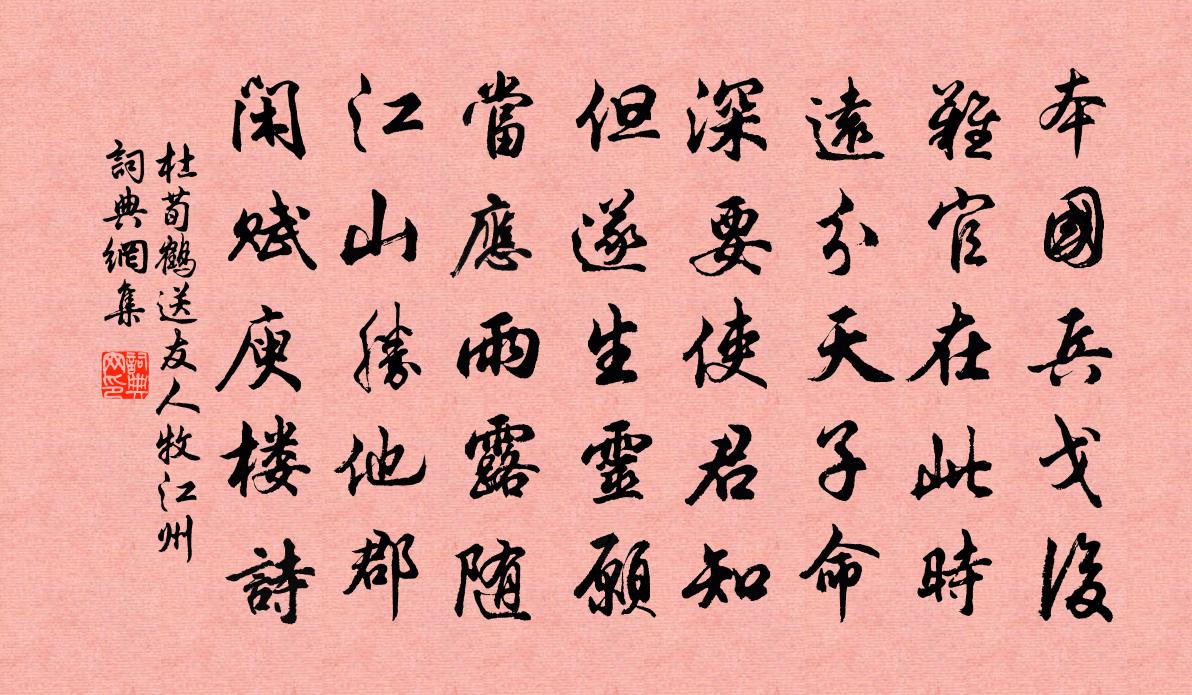 本國兵戈後
難官在此時
遠分天子命
深要使君知
但遂生靈願
當應雨露随
江山勝他郡
閑賦庾楼詩
杜荀鶴送友人牧江州
詞典網集
詞典网印